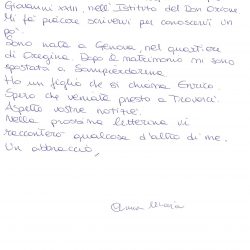 Giovanni XXIII, nell'Istituto del Don Orione.
Mi fa piacere scrivervi per conoscerci un
po'.
Sono nata a Genova, nel quartiere
di Oregina. Dopo il matrimonio mi sono
spostata a Sampierdarena.
Ho un figlio che si chiama Enrico.
Spero che veniate presto a trovarci.
Aspetto vostre notizie.
Nella prossima letterina vi
racconterò qualcosa d'altro di me.
Un abbraccio,
Anna Maria